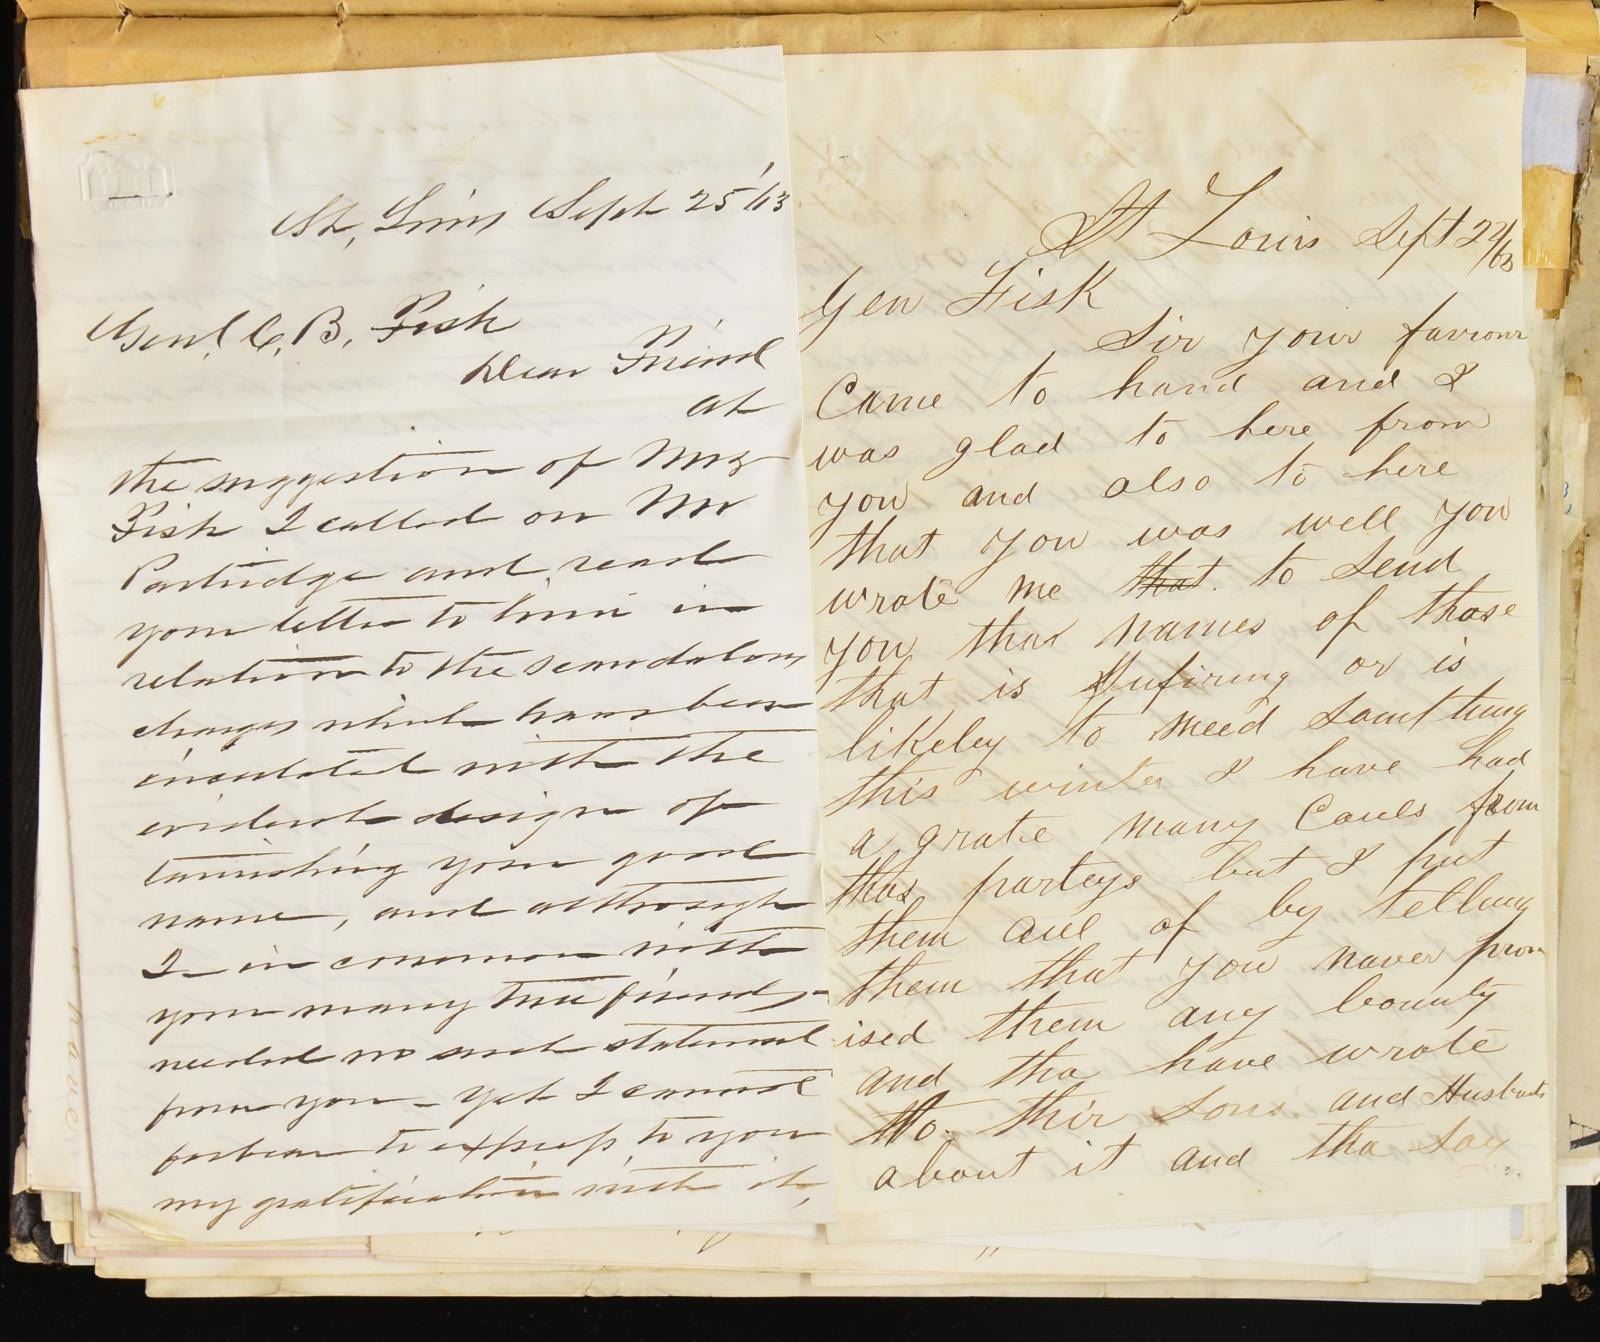 St, Louis Sept 25/63
Genl. C. B. Fisk
Dear Friend
at
the suggestion of Mrs
Fisk I called on Mr
Partridge and read
your letter to him in
relation to the scandalous
charges which have been
circulated with the
evident design of
tarnishing your good
name, and although
I in common with
your many true friends
needed no such statement
from you - yet I cannot
forbear to express to you
my gratification with it,
St Louis Sept 22/63
Gen Fisk
Sir your faviour
Came to hand and I
was glad to here from
you and also to here
that you was well you
wrote me that to send
you thar names of those
that is Sufiring or is
likeley to need Somthing
this winter I have had
a grate many Cauls from
thos parteys but I put
them aul of by telling
them that you naver prom
ised them any bounty
and tha have wrote
to thir Sons and Husbands
about it and tha Say
nave